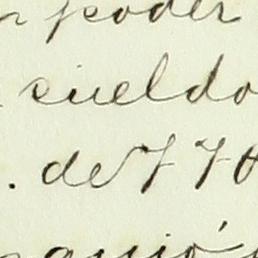 poder
sueldo
. de 770